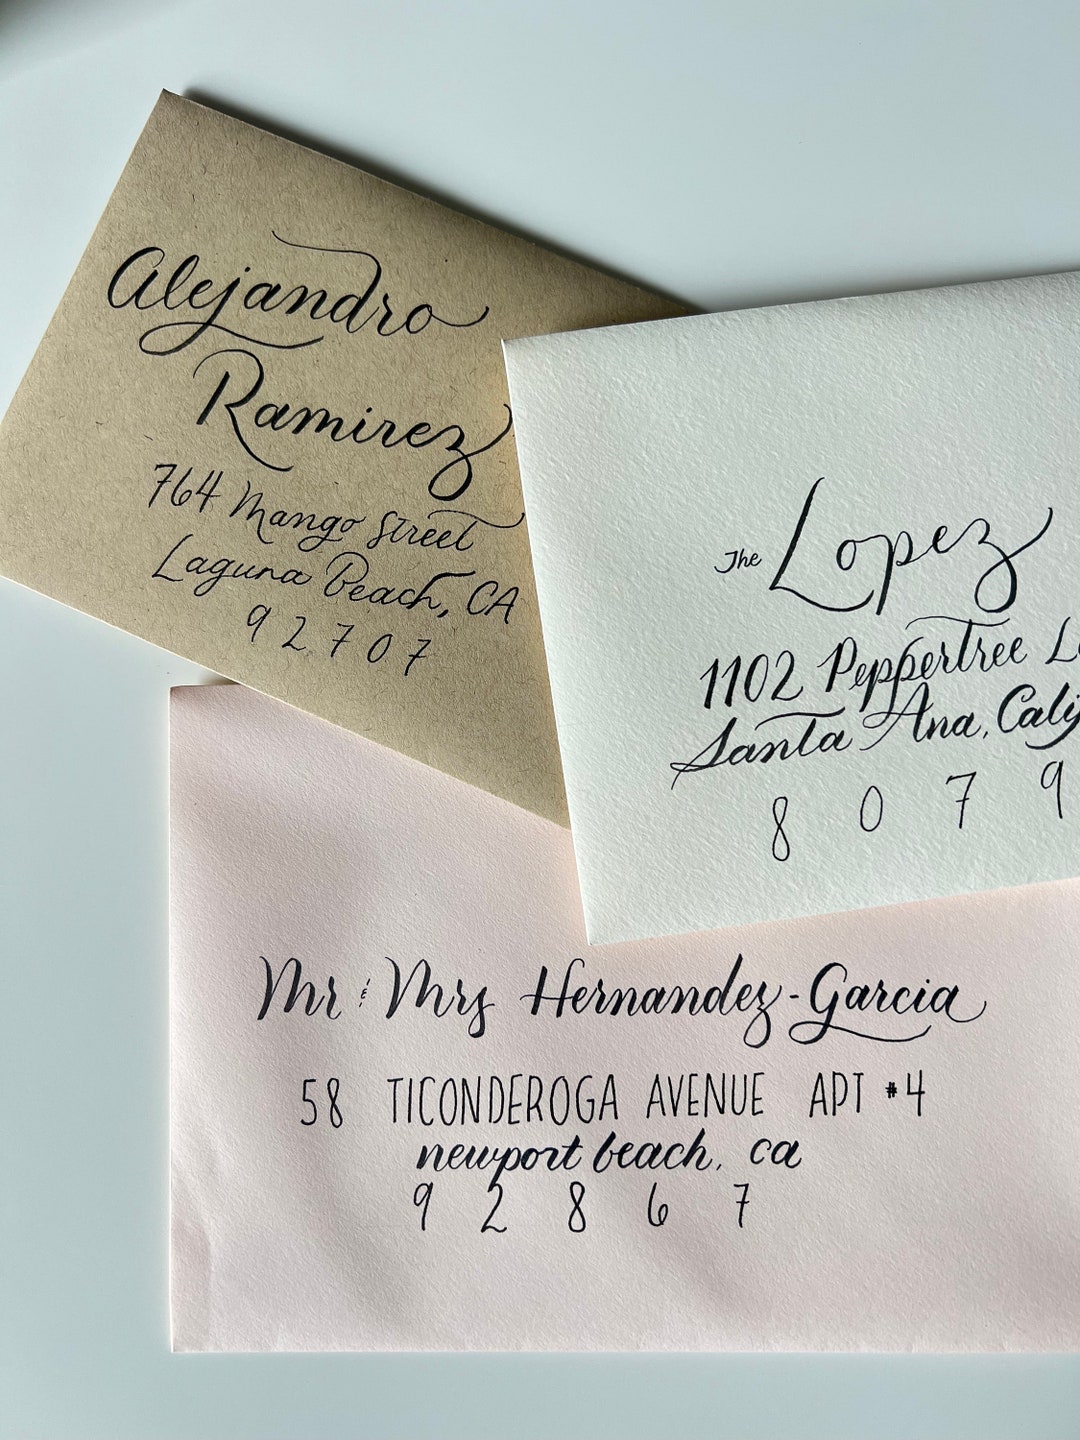 Alejandro
Ramirez
764 Mango Street
Laguna Beach, CA
92707
The Lopez
1102 Peppertree L
Santa Ana, Calif
8 0 7 9
Mr & Mrs Hernandez-Garcia
58 TICONDEROGA AVENUE APT #4
newport beach, ca
9 2 8 6 7